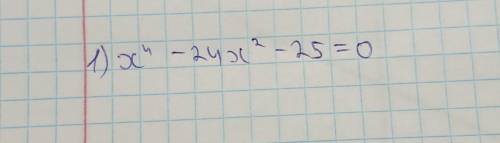 1) x⁴ - 24x² - 25 = 0